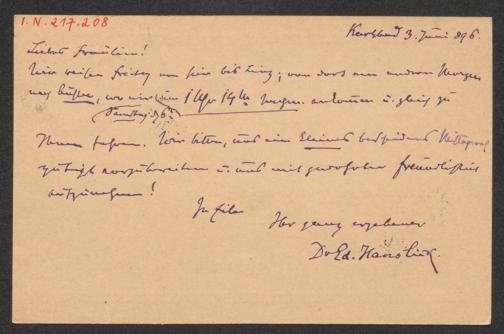 I.N. 217.208
Karlsbad 3. Juni 896.
Liebes Fräulein!
Wir reisen Freitag von hier bis Linz, von dort am andern Morgen
nach, wo wir um 1 Uhr 14 M. ankommen u. gleich zu
Samstag d. 6.
Ihnen fahren. Wir bitten, uns ein kleines bescheidenes
gütigst vorzubereiten u. uns mit gewohnter Freundlichkeit
aufzunehmen!
In Eile
Ihr ganz ergebener
Dr Ed. Hanslick.